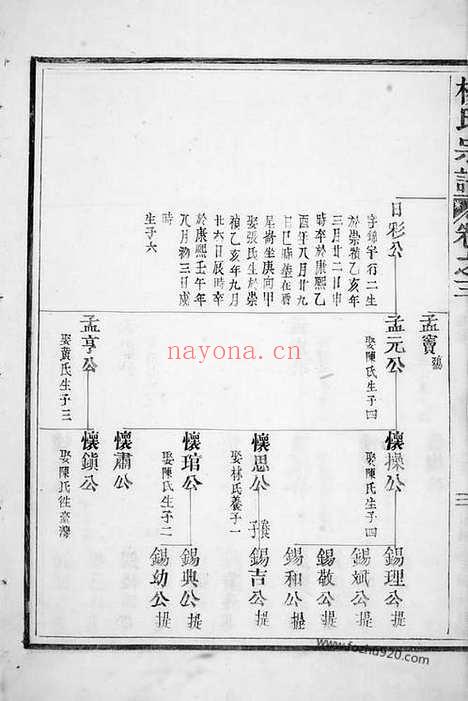 林氏宗譜 卷之三
三
孟寶
日彩公
字錦宇行二生
於崇禎乙亥年
三月廿二日申
時卒於康熙乙
酉年八月廿九
日巳時葬在看
星崙坐庚向甲
娶張氏生於崇
禎乙亥年九月
廿六日辰時卒
於康熙壬午年
八月初三日戌
時
生子六
孟元公
娶陳氏生子四
孟亨公
娶黃氏生子三
懷操公
娶陳氏生子四
懷思公
娶林氏養子一
懷琯公
娶陳氏生子二
懷肅公
懷鎮公
娶陳氏徃臺灣
錫理公 提
錫斌公 提
錫敬公 提
錫和公 提
養子
錫吉公 提
錫典公 提
錫幼公 提
nayona.cn
www.fozhu920.com